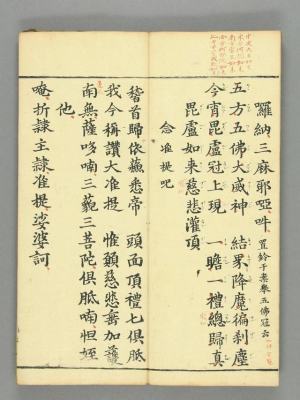 囉納三麻耶啞吽 置鈴于案舉五佛冠云
五方五佛大威神 結界降魔徧剎塵
今宵毘盧冠上現 一瞻一禮總歸真
毘盧如來慈悲灌頂
念准提咒
稽首皈依蘇悉帝 頭面頂禮七俱胝
我今稱讚大准提 惟願慈悲垂加護
南無薩哆喃三藐三菩陀俱胝喃怛姪
他
唵折隸主隸准提娑婆訶